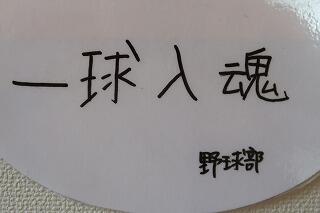 一球入魂
野球部